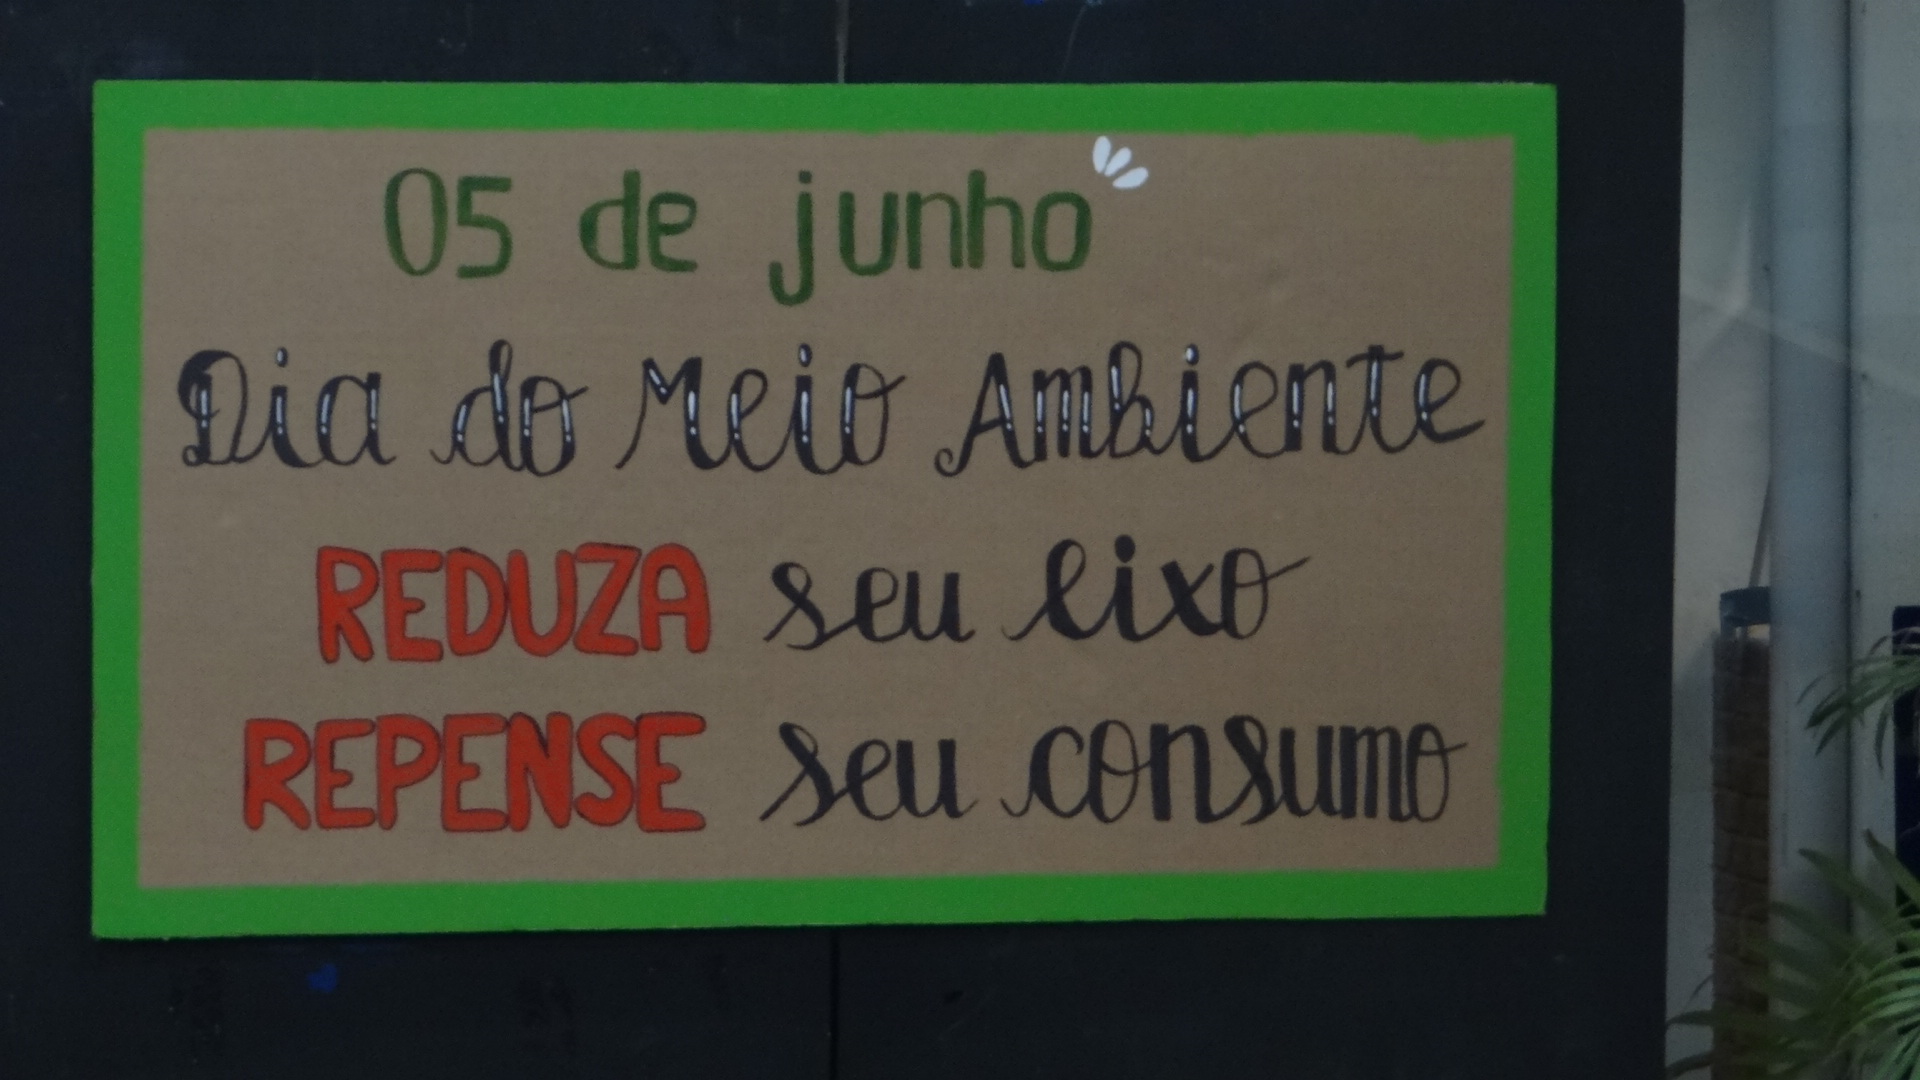 05 de junho
Dia do Meio Ambiente
REDUZA seu lixo
REPENSE seu consumo